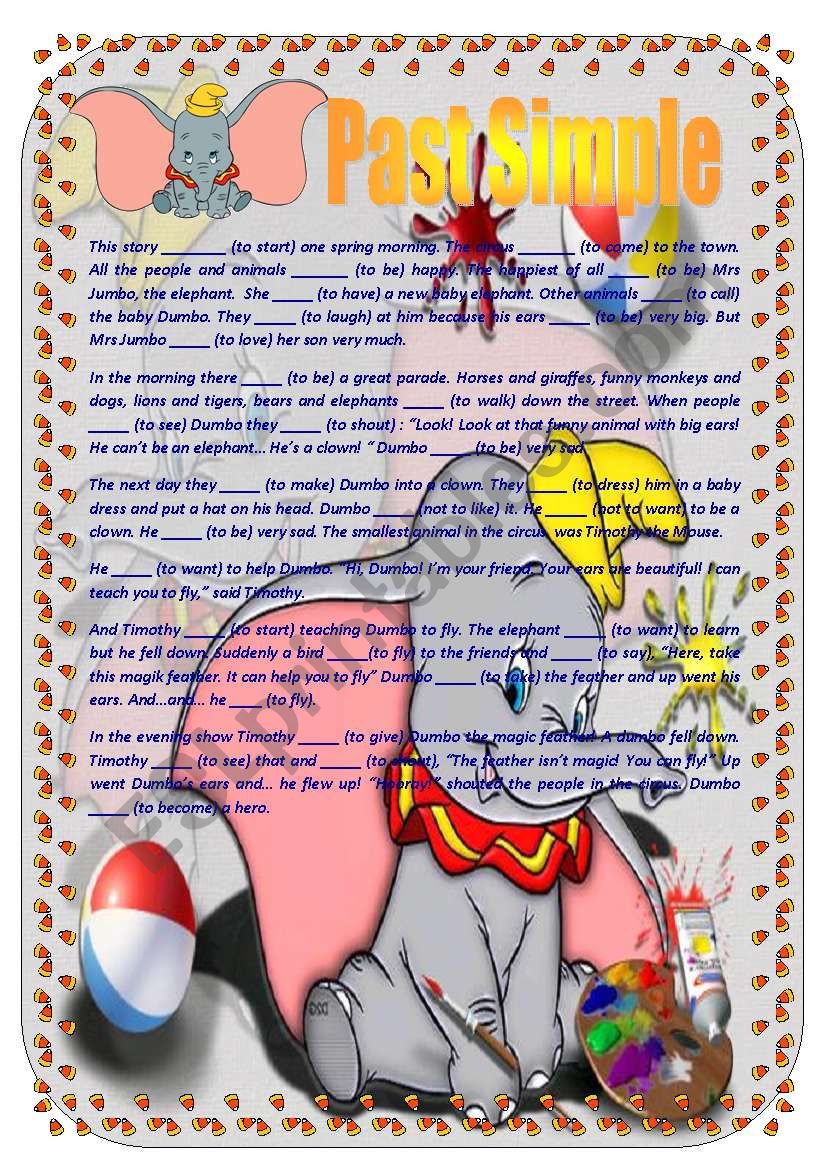 Past Simple
This story ________ (to start) one spring morning. The circus _______ (to come) to the town.
All the people and animals _______ (to be) happy. The happiest of all _____ (to be) Mrs
Jumbo, the elephant. She _____ (to have) a new baby elephant. Other animals _____ (to call)
the baby Dumbo. They _____ (to laugh) at him because his ears _____ (to be) very big. But
Mrs Jumbo _____ (to love) her son very much.
In the morning there _____ (to be) a great parade. Horses and giraffes, funny monkeys and
dogs, lions and tigers, bears and elephants _____ (to walk) down the street. When people
_____ (to see) Dumbo they _____ (to shout) : “Look! Look at that funny animal with big ears!
He can’t be an elephant... He’s a clown! “ Dumbo _____ (to be) very sad
The next day they _____ (to make) Dumbo into a clown. They _____ (to dress) him in a baby
dress and put a hat on his head. Dumbo _____ (not to like) it. He _____ (not to want) to be a
clown. He _____ (to be) very sad. The smallest animal in the circus was Timothy the Mouse.
He _____ (to want) to help Dumbo. “Hi, Dumbo! I’m your friend. Your ears are beautiful! I can
teach you to fly,” said Timothy.
And Timothy _____ (to start) teaching Dumbo to fly. The elephant _____ (to want) to learn
but he fell down. Suddenly a bird _____(to fly) to the friends and _____ (to say), “Here, take
this magik feather. It can help you to fly” Dumbo _____ (to take) the feather and up went his
ears. And...and... he ____ (to fly).
In the evening show Timothy _____ (to give) Dumbo the magic feather! A dumbo fell down.
Timothy _____ (to see) that and _____ (to shout), “The feather isn’t magic! You can fly!” Up
went Dumbo’s ears and... he flew up! “Hooray!” shouted the people in the circus. Dumbo
_____ (to become) a hero.
ESLprintables.com